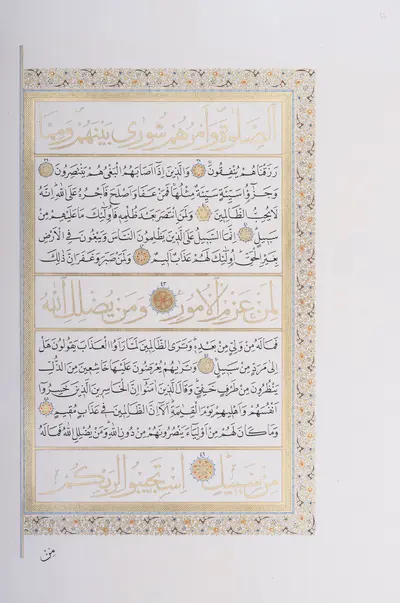 الصلوة وامرهم شورى بينهم ومما
رزقناهم ينفقون والذين اذا اصابهم البغى هم ينتصرون
وجزٰؤا سيئة سيئة مثلها فمن عفا واصلح فاجره على الله انه
لا يحب الظالمين ولمن انتصر بعد ظلمه فاولئك ما عليهم من
سبيل انما السبيل على الذين يظلمون الناس ويبغون فى الارض
بغير الحق اولئك لهم عذاب اليم ولمن صبر وغفر ان ذلك
لمن عزم الامور ومن يضلل الله
فماله من ولى من بعده وترى الظالمين لما راوا العذاب يقولون هل
الى مرد من سبيل وتريهم يعرضون عليها خاشعين من الذل
ينظرون من طرف خفى وقال الذين امنوا ان الخاسرين الذين خسروا
انفسهم واهليهم يوم القيمة الا ان الظالمين فى عذاب مقيم
وما كان لهم من اولياء ينصرونهم من دون الله ومن يضلل الله فماله
من سبيل استجيبوا لربكم
من